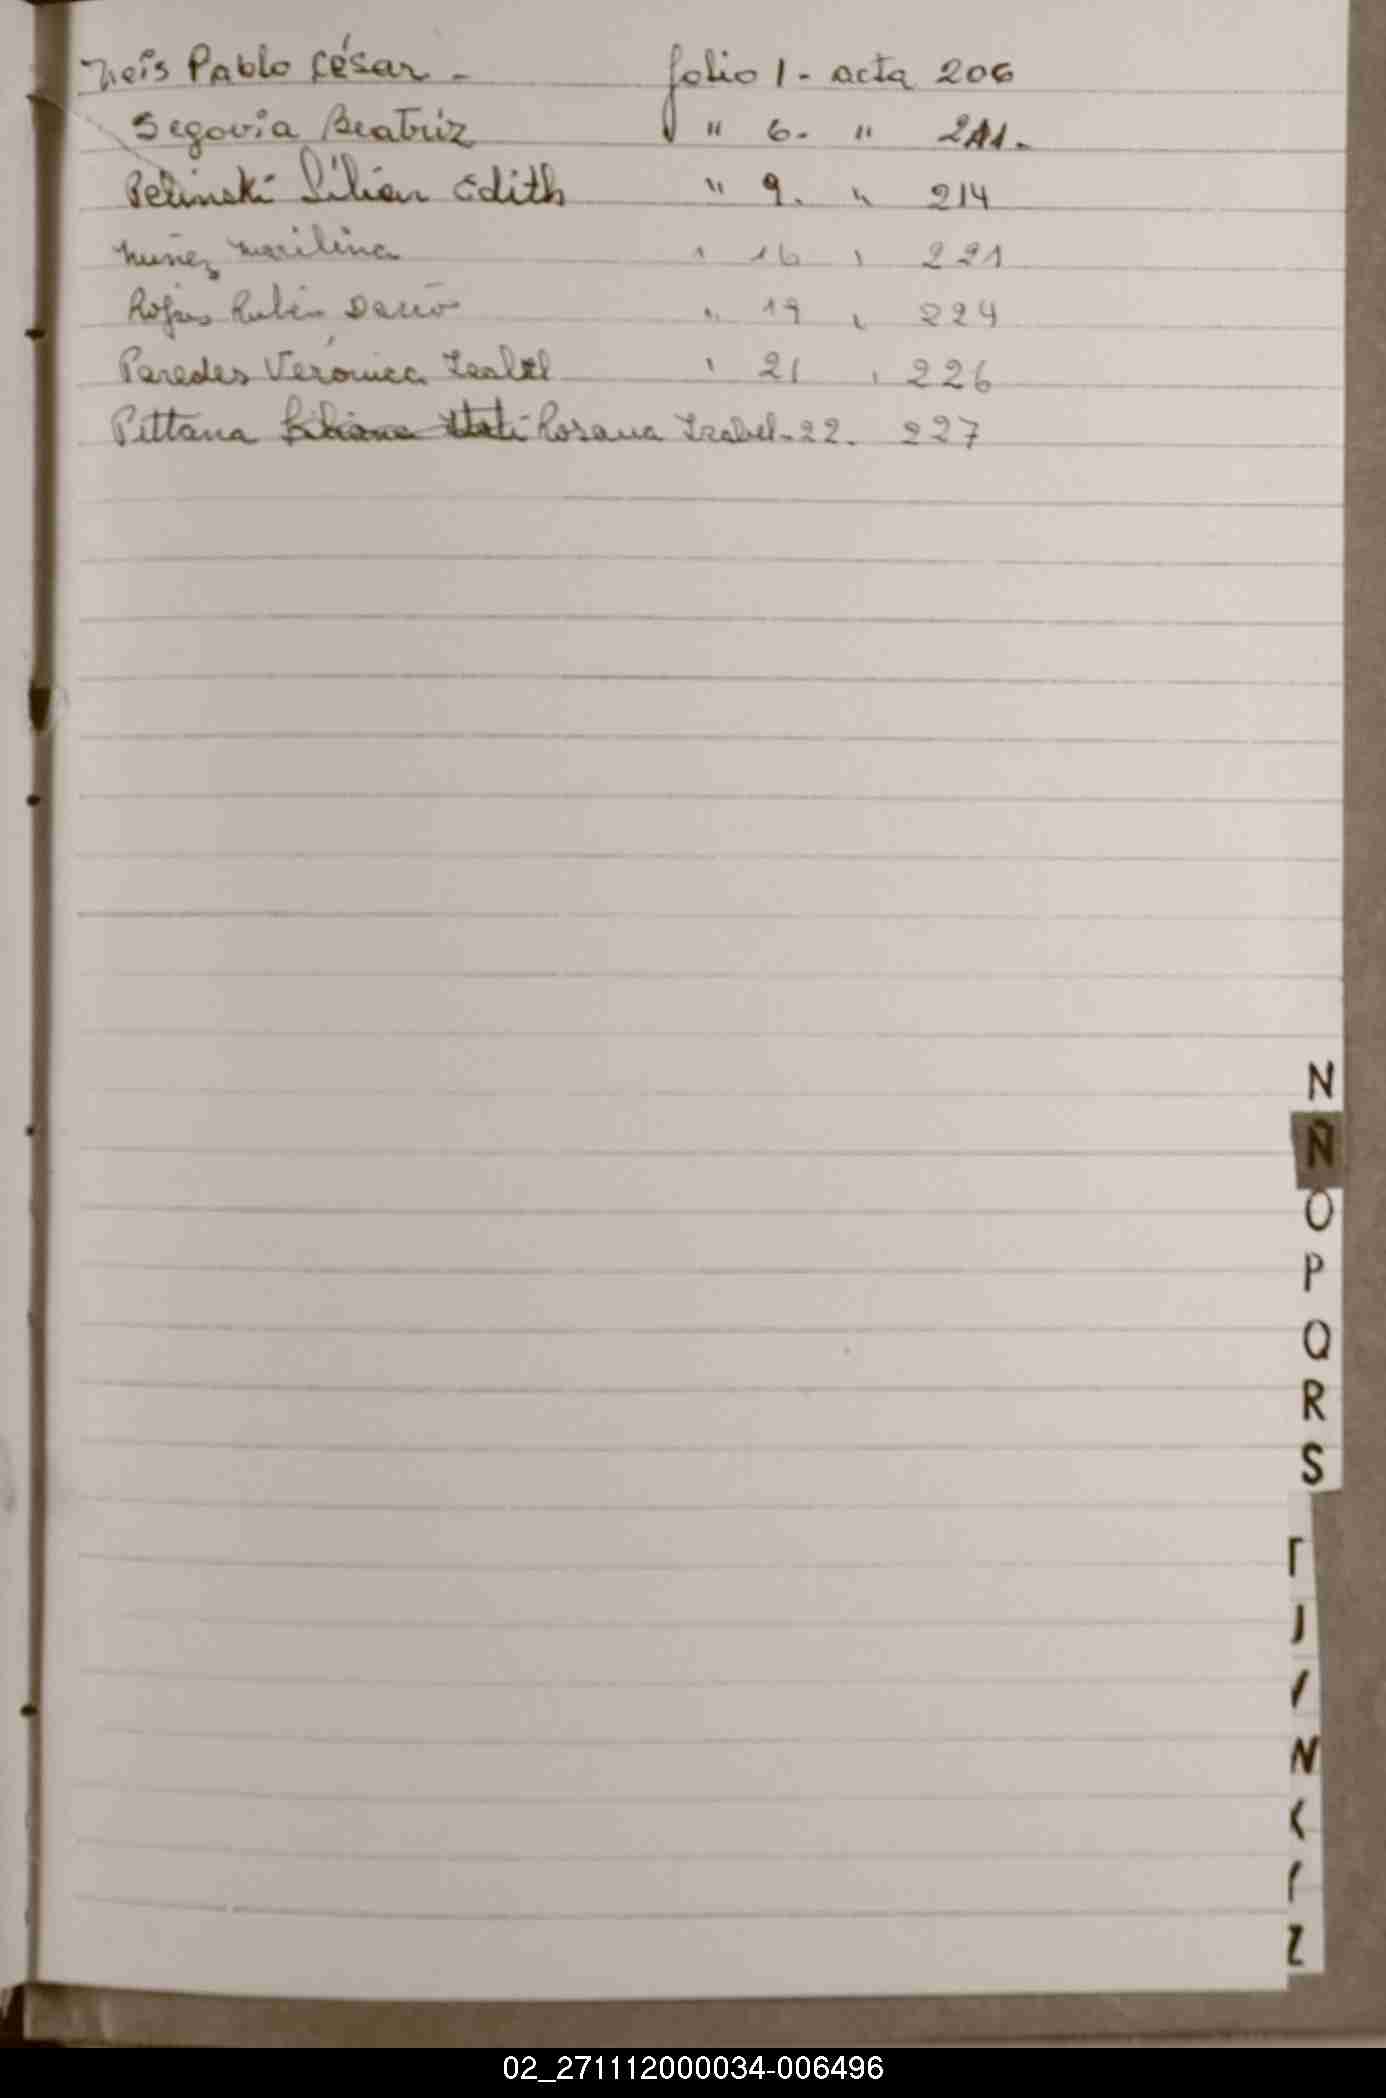 Neis Pablo César - folio 1 - acta 206
Segovia Beatriz " 6 - " 211 -
Pelinski Lilian Edith " 9. " 214
Nuñez Marilina " 16 " 221
Rojas Rubén Darío " 19 " 224
Paredes Verónica Isabel " 21 " 226
Pittana Rosana Izabel - 22. 227
N
Ñ
O
P
Q
R
S
T
Z
02_271112000034-006496